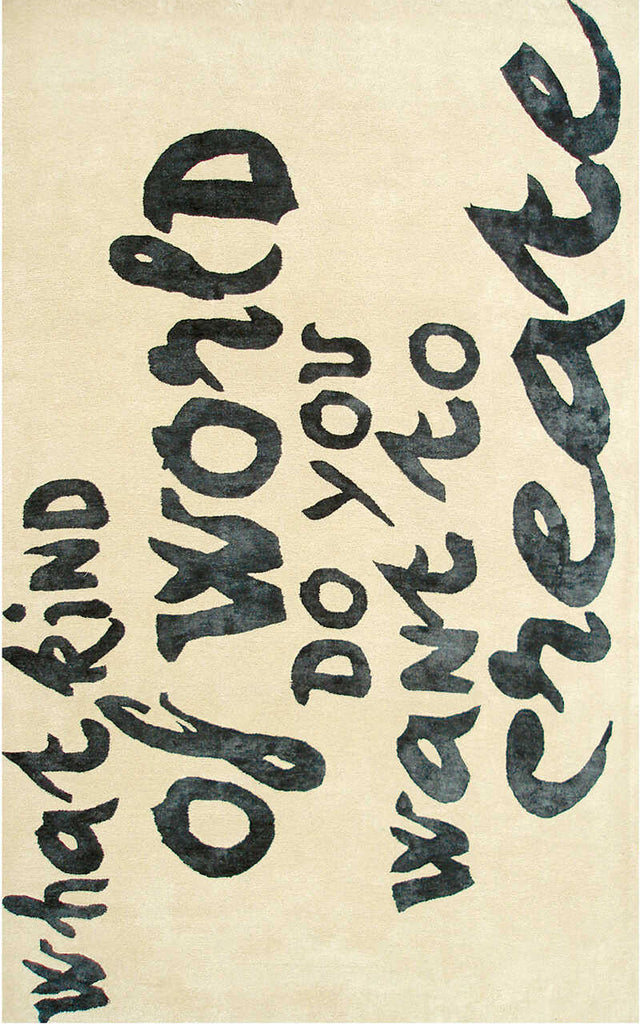 what kiND
of WorlD
DO YOU
want to
create